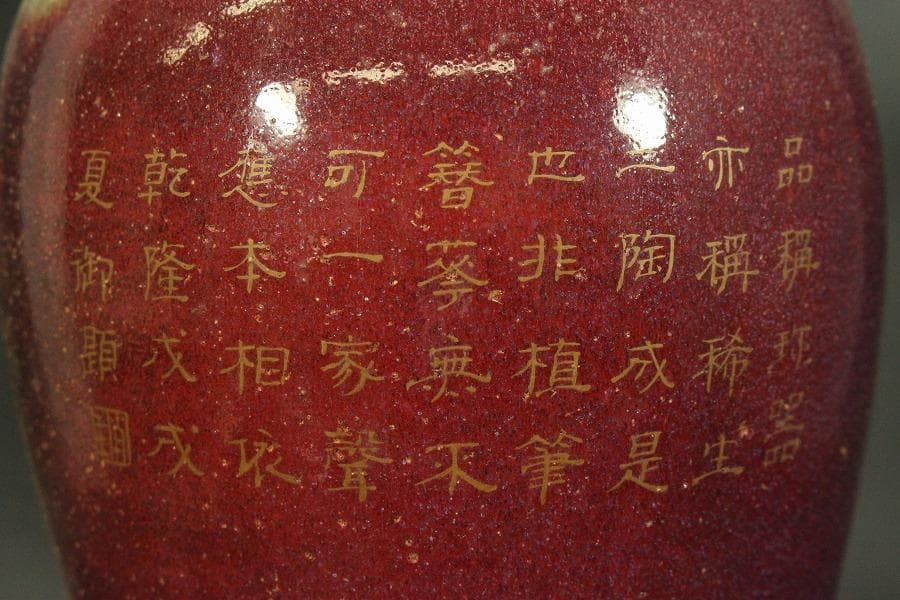 品稱珎器
亦稱稀生
二陶成是
也非植筆
簪無不
可一家聲
應本相依
乾隆戊戌
夏御題